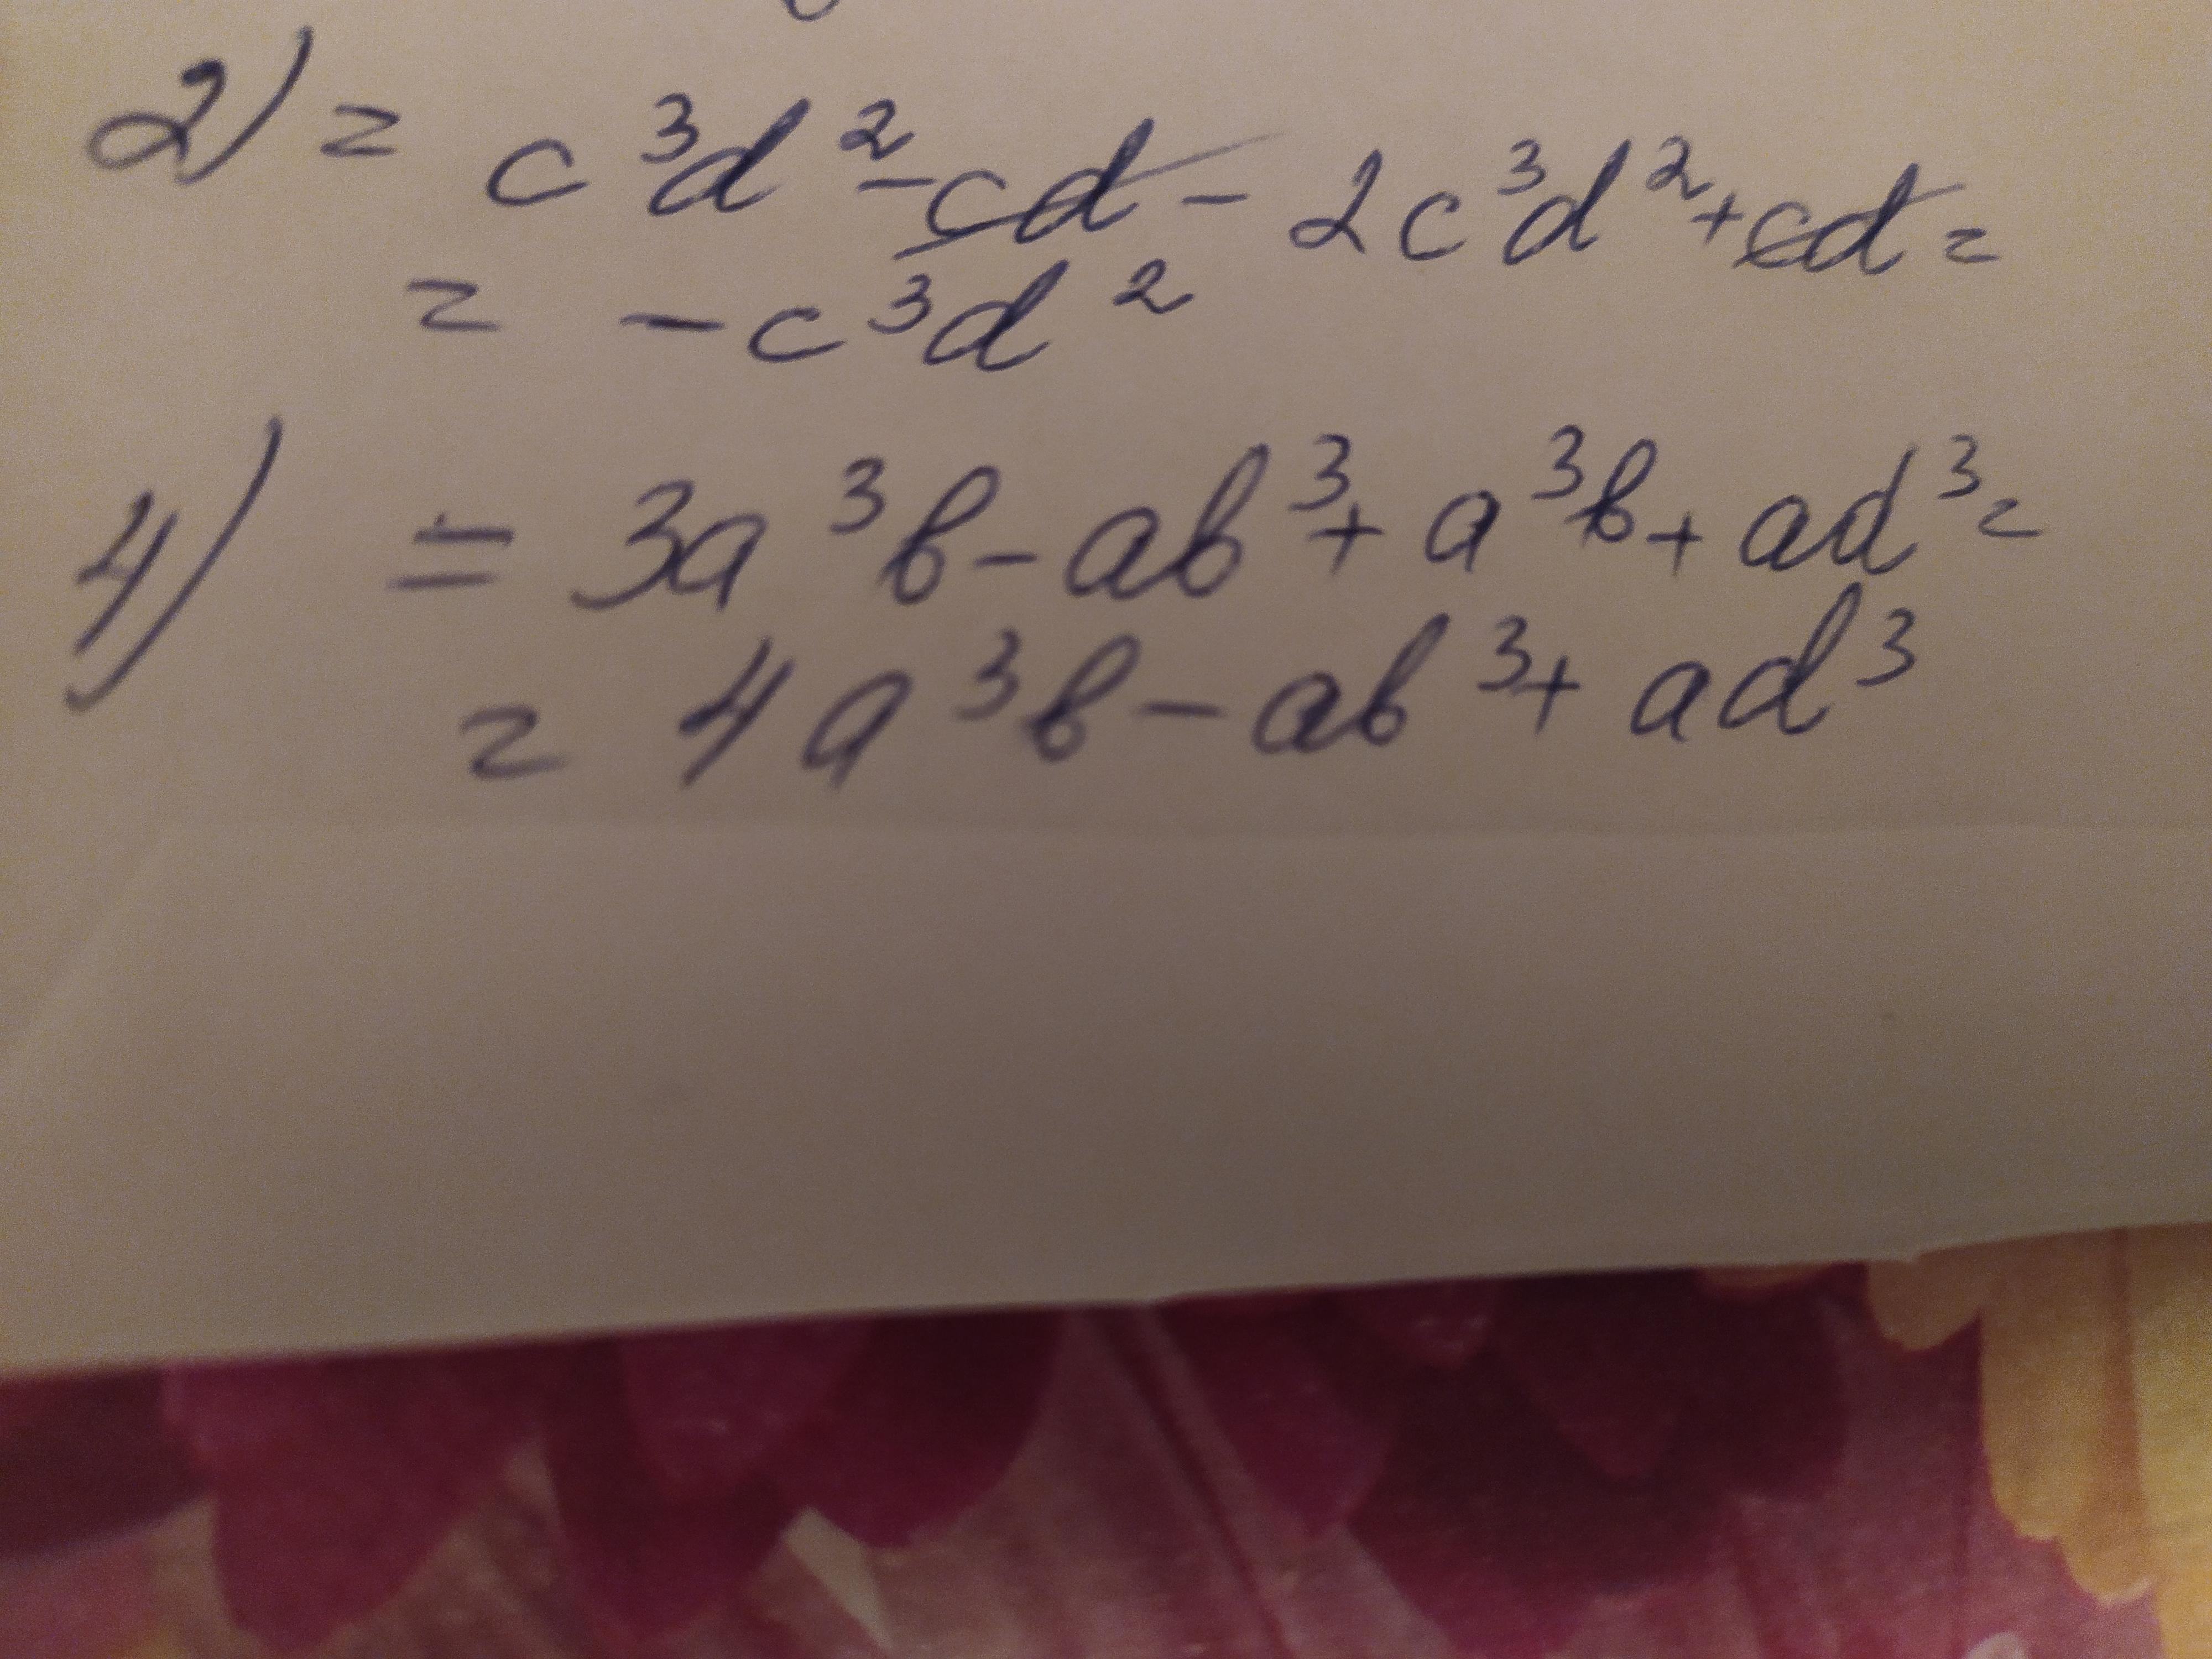 2) = c³d² - cd - 2c³d² + cd =
= - c³d²
4) = 3a³b - ab³ + a³b + ad³ =
= 4a³b - ab³ + ad³